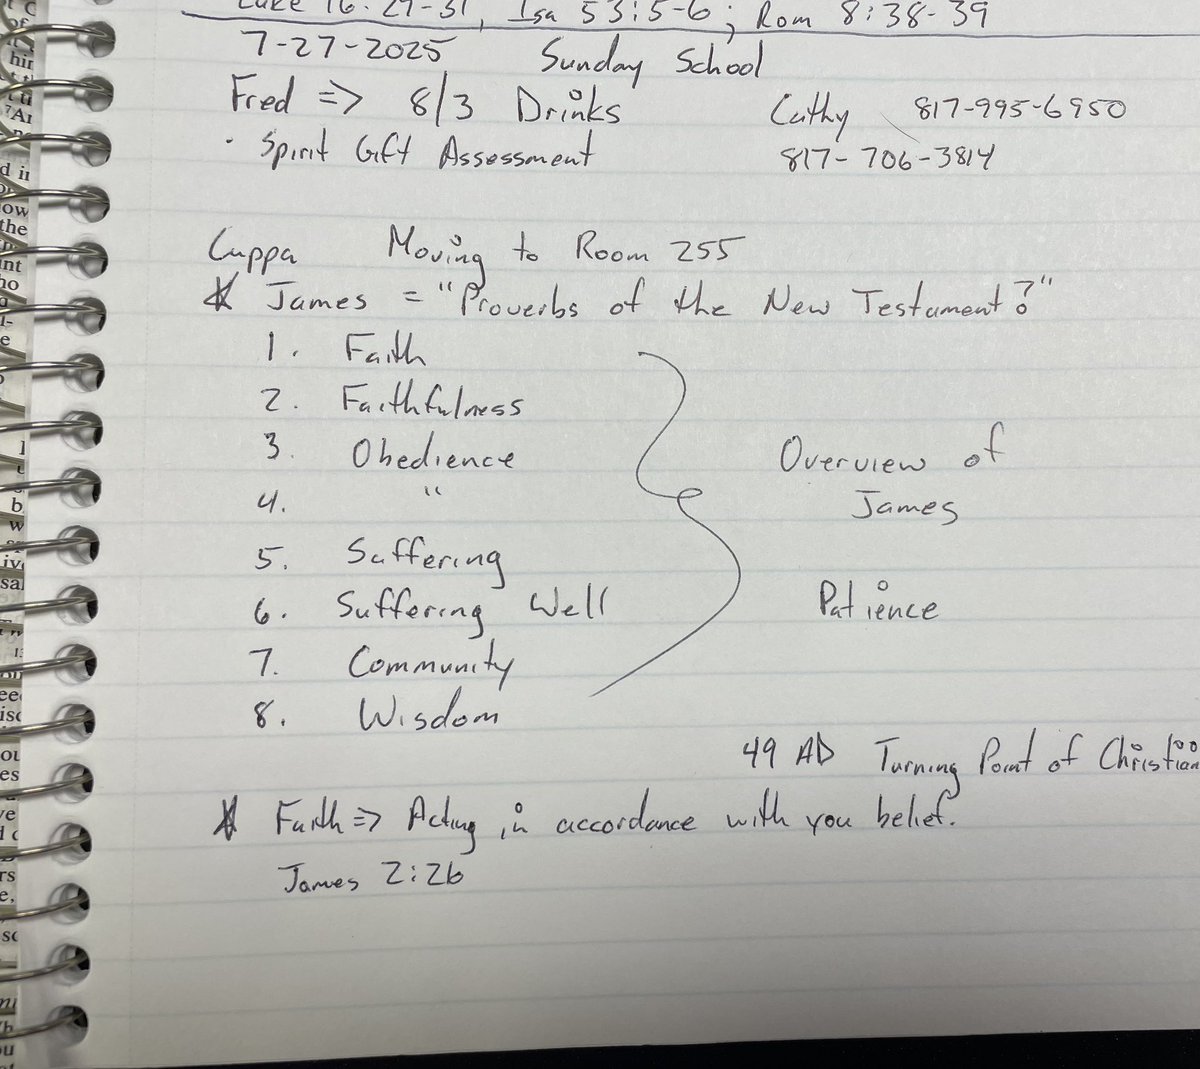 Luke 16:27-31, Isa 53:5-6; Rom 8:38-39
7-27-2025 Sunday School
Fred => 8/3 Drinks Cathy 817-995-6950
· Spirit Gift Assessment 817-706-3814
Cuppa Moving to Room 255
* James = "Proverbs of the New Testament?"
1. Faith
2. Faithfulness
3. Obedience
4. "
5. Suffering
6. Suffering Well
7. Community
8. Wisdom
Overview of
James
Patience
49 AD Turning Point of Christian
* Faith => Acting in accordance with you belief.
James 2:26